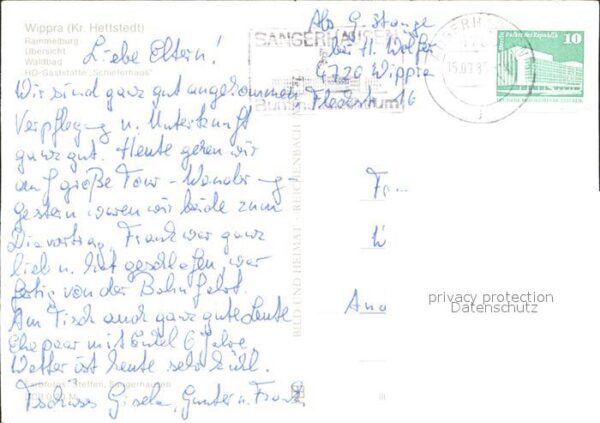 Wippra (Kr. Hettstedt)
Rammelburg
Übersicht
Waldbad
HO-Gaststätte „Schieferhaus"
Abs G. Stange
bei H. Wölfer
4720 Wippra
Fleckstr. 16
SANGERHAUSEN
15.09.8
10
Liebe Eltern!
Wir sind ganz gut angekommen
Verpflegung u. Unterkunft
ganz gut. Heute gehen wir
auf große Tour - Wandrg -
gestern waren wir beide zum
Diavortrag, Frank war ganz
lieb u. hat geschlafen, war
fertig von der Bahnfahrt.
Am Tisch auch ganz gute Leute
Ehepaar mit Enkel 6 Jahre
Wetter ist heute sehr kühl.
Tschüss Gisela, Gunter u. Frank
BILD UND HEIMAT REICHENBACH
Farbfotos: Steffen, Sangerhausen
privacy protection
Datenschutz